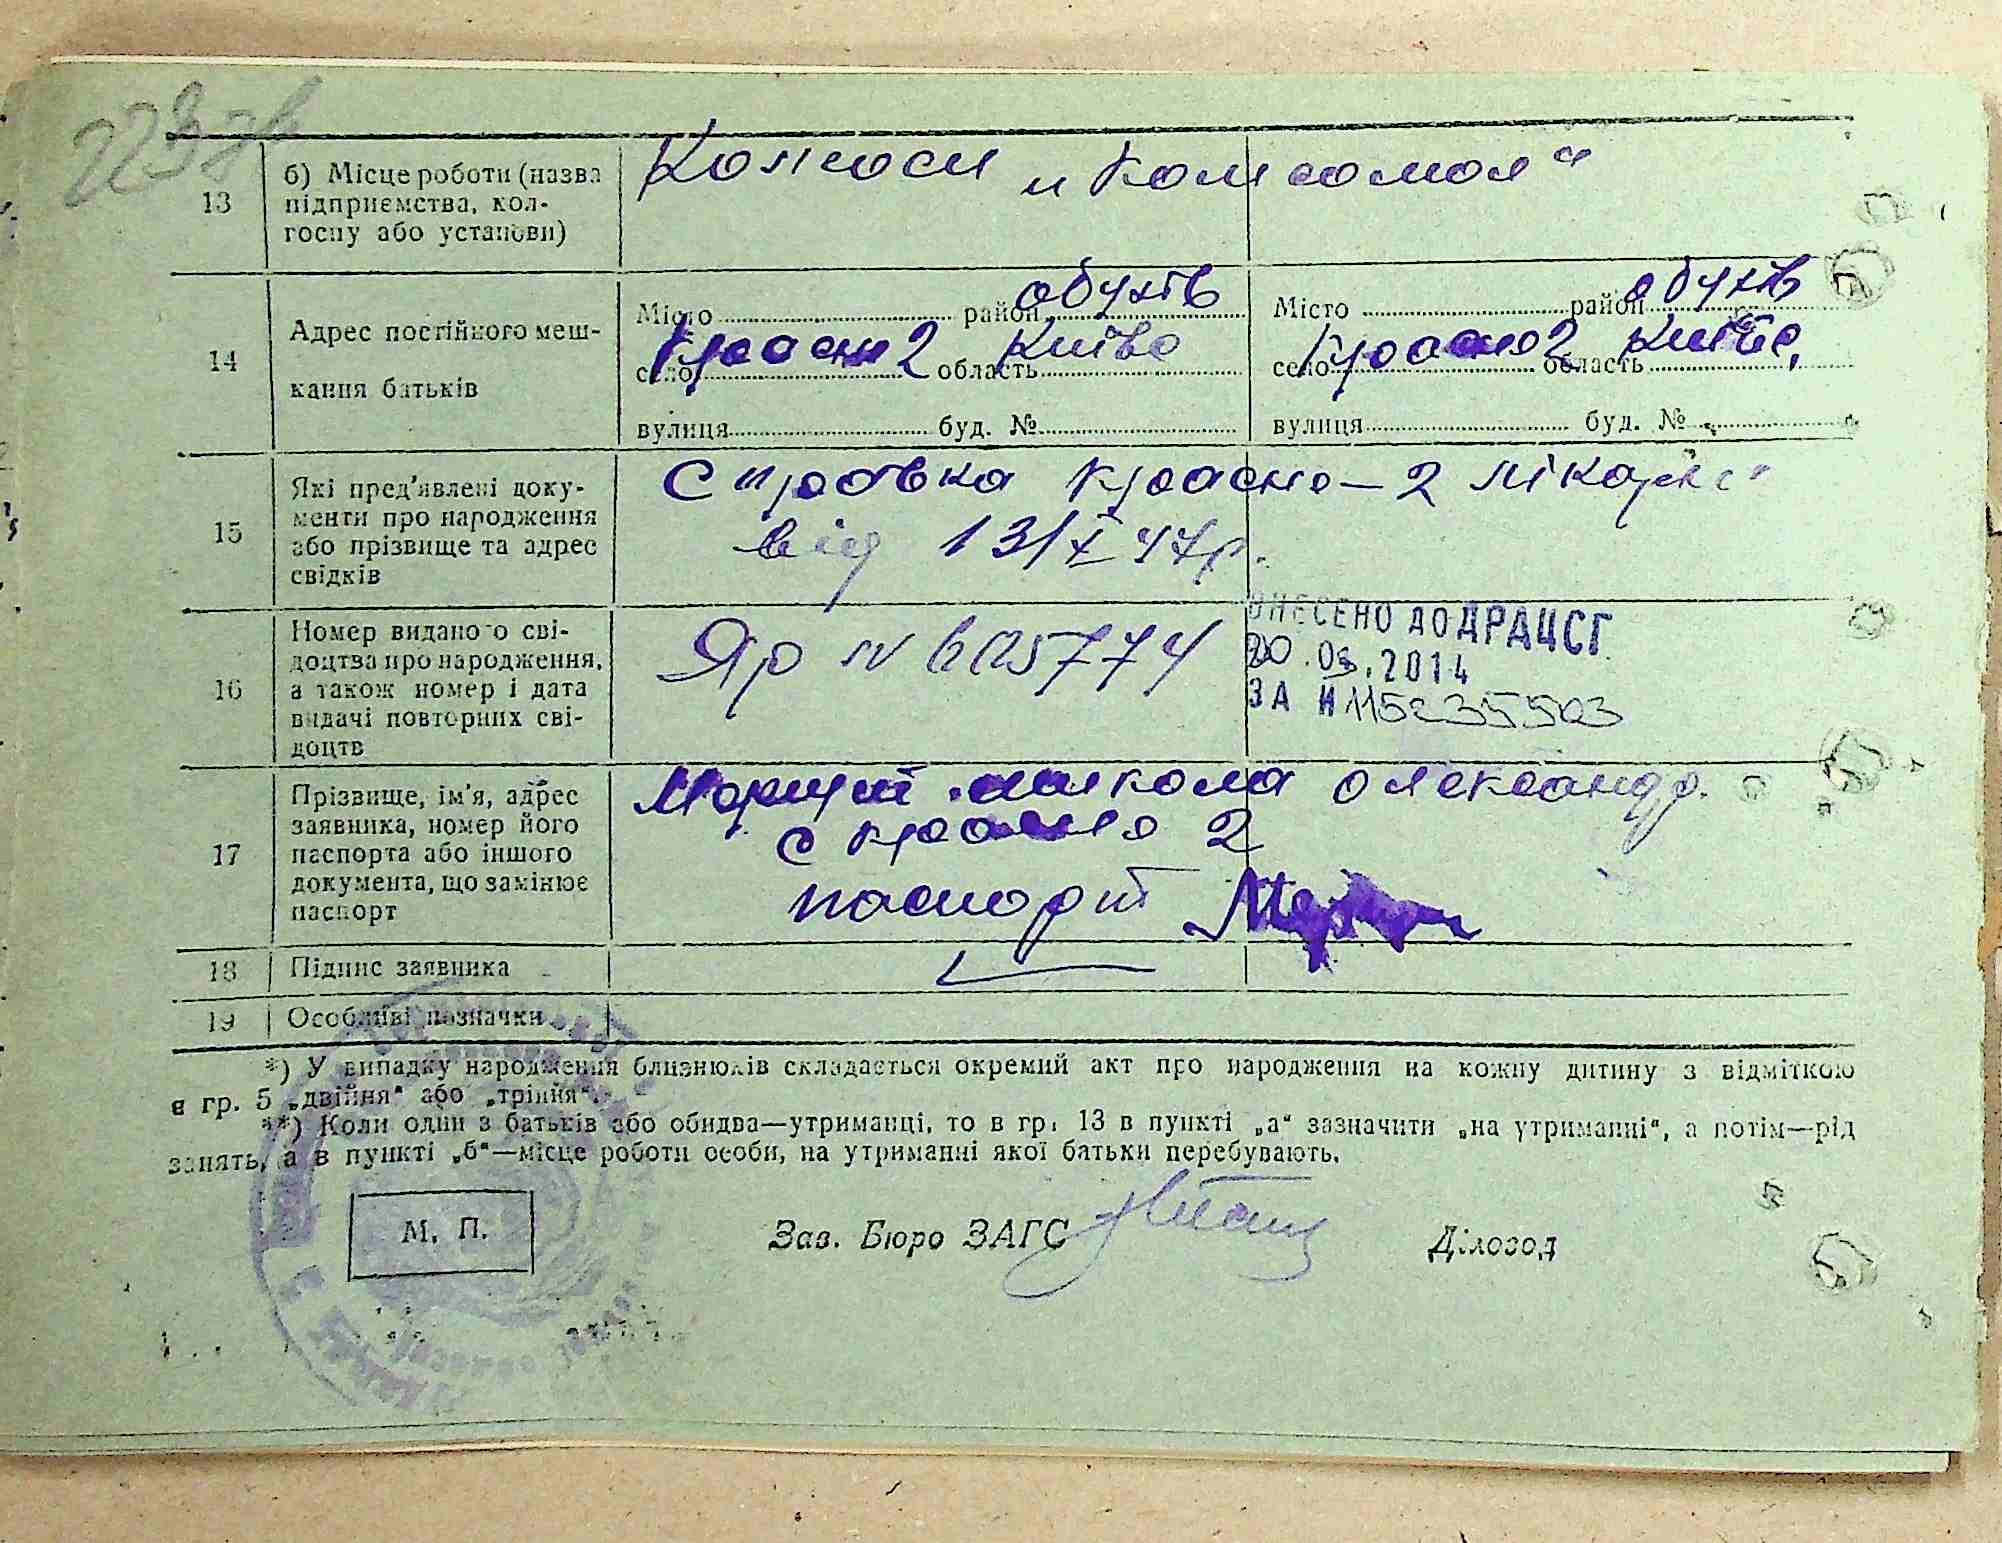 13
б) Місце роботи (назва
підприємства, кол-
госпу або установи)
Колгосп „Комсомол“
14
Адрес постійного меш-
кання батьків
Місто район Обухів
село Красне 2 область Київс
вулиця буд. №
Місто район Обухів
село Красне 2 область Київс,
вулиця буд. №
15
Які пред'явлені доку-
менти про народження
або прізвище та адрес
свідків
Справка Красне-2 лікарні
від 13/X 47р.
16
Номер виданого сві-
доцтва про народження,
а також номер і дата
видачі повторних сві-
доцтв
Яр №
ВНЕСЕНО ДО ДРАЦСГ
2014
ЗА №
17
Прізвище, ім'я, адрес
заявника, номер його
паспорта або іншого
документа, що замінює
паспорт
Микола Олександр.
с Красне 2
паспорт
18
Підпис заявника
19
Особливі позначки
*) У випадку народження близнюків складається окремий акт про народження на кожну дитину з відміткою
в гр. 5 „двійня“ або „трійня“.
**) Коли один з батьків або обидва—утриманці, то в гр. 13 в пункті „а“ зазначити „на утриманні“, а потім—рід
занять, а в пункті „б“—місце роботи особи, на утриманні якої батьки перебувають.
М. П.
Зав. Бюро ЗАГС
Діловод